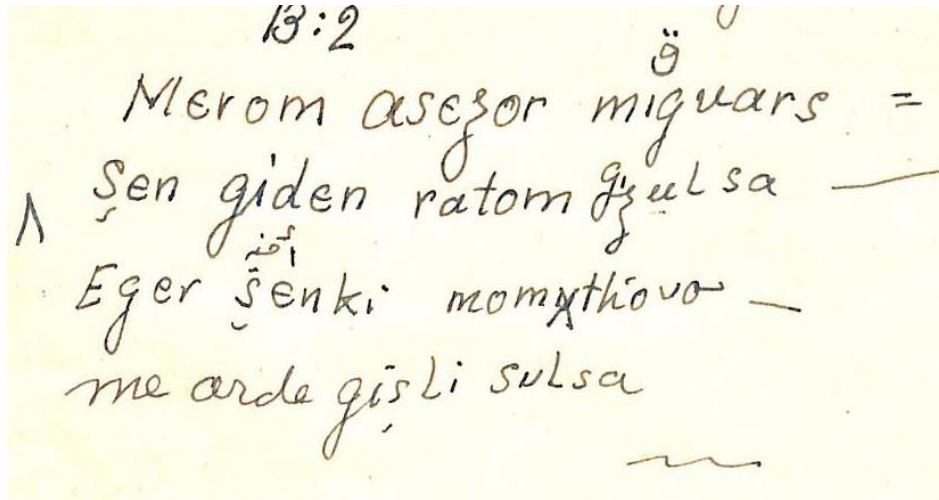 13:2
ğ̈
Merom asezor mıgvars =
Şen giden ratom gzulsa —
Eger şenki momıthovo —
me arde gişli sulsa